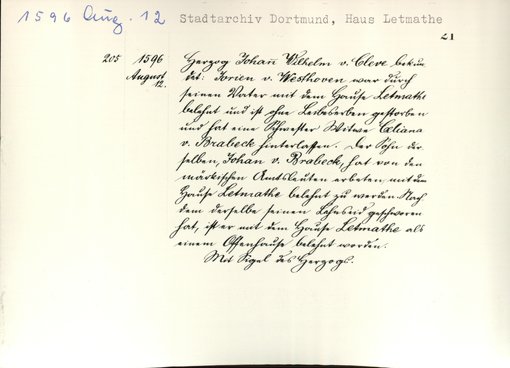 1596 Aug. 12 Stadtarchiv Dortmund, Haus Letmathe
21
205 1596 Herzog Johan̄ Wilhelm v. Cleve bekun
August det: Jorien v. Westhoven war durch
12. seinen Vater mit dem Hause Letmathe
belehnt und ist ohne Leibeserben gestorben
und hat eine Schwester Witwe Eliana
v. Brabeck hinterlassen. Der Sohn der
selben, Johan v. Brabeck, hat von den
märkischen Amtsleuten erbeten mit dem
Hause Letmathe belehnt zu werden. Nach
dem derselbe seinen Lehnseid geschworen
hat, ist er mit dem Hause Letmathe als
einem Offenhause belehnt worden.
Mit Sigel des Herzogs.